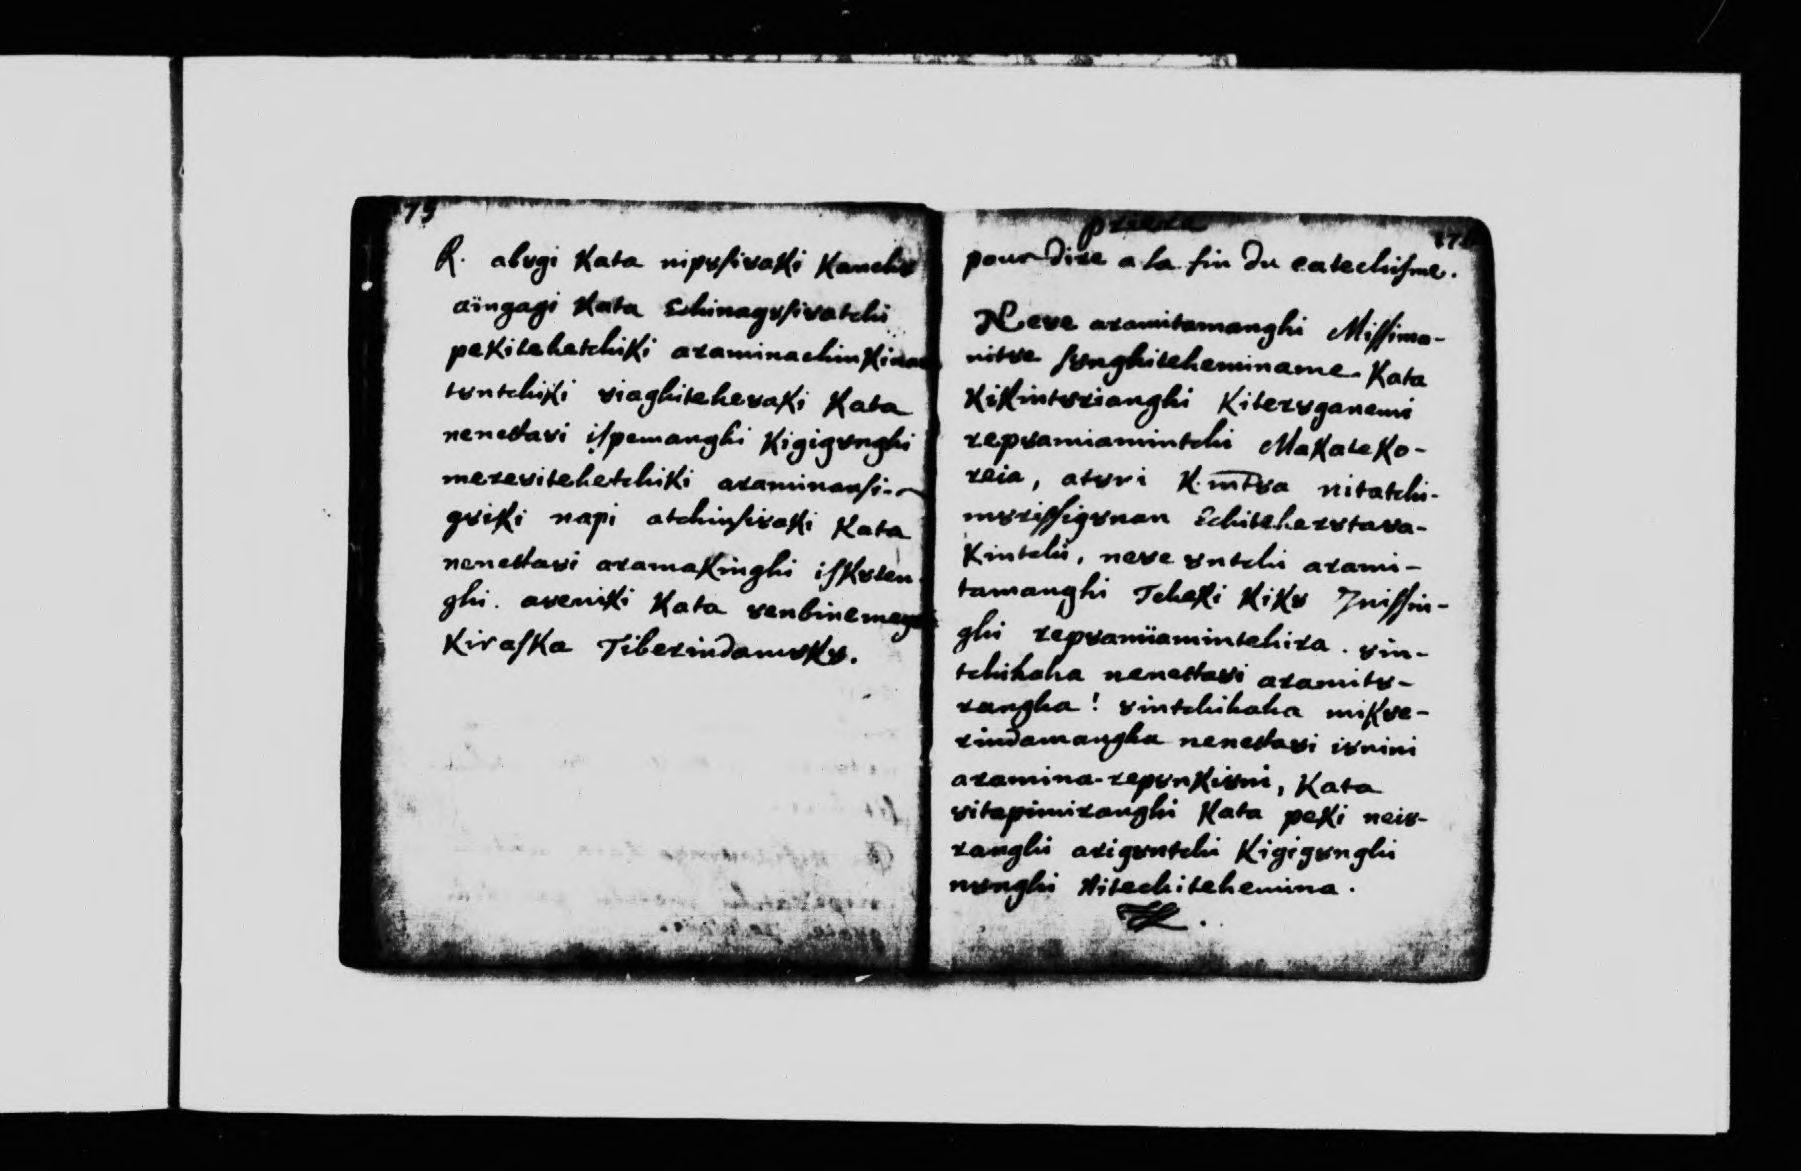 175
R. abȣgi Kata nipȣsiȣaki Kanchȣ
aïngagi Kata Echinagȣsiȣatchi
pekitehetchiki araminachinkiaȣa
tȣntchiki ȣiaghiteheȣaki Kata
nenettaȣi ispemanghi Kigigȣnghi
mereȣitehetchiki araminansi-
gȣiki napi atchinsiȣaki Kata
nenettaȣi aramakinghi iskȣten
ghi. aȣeniki Kata ȣenbinemegȣ
Kiraska Tiberindamȣkȣ.
176
priere
pour dire a la fin du catechisme.
Neȣe aramitamanghi Missima-
nitȣe sȣnghiteheminame. Kata
Kikintȣrianghi Kiterȣganemi
repȣamiamintchi Makateko-
reia, atȣri K. mt̄ȣa nitatchi-
mȣrissigȣnan Echiteherȣtaȣa-
Kintchi, neȣe ȣntchi arami-
tamanghi Tcheki Kikȣ Inissin-
ghi repȣamiiamintehira. ȣin-
tchihaha nenettaȣi aramitȣ-
rangha! ȣintchihaha mikȣe-
rindamangha nenettaȣi iȣnini
aramina-repȣnkiȣni, Kata
ȣitapimiranghi Kata peki neiȣ-
ranghi arigȣntchi Kigigȣnghi
nȣnghi Nitechitehemina.